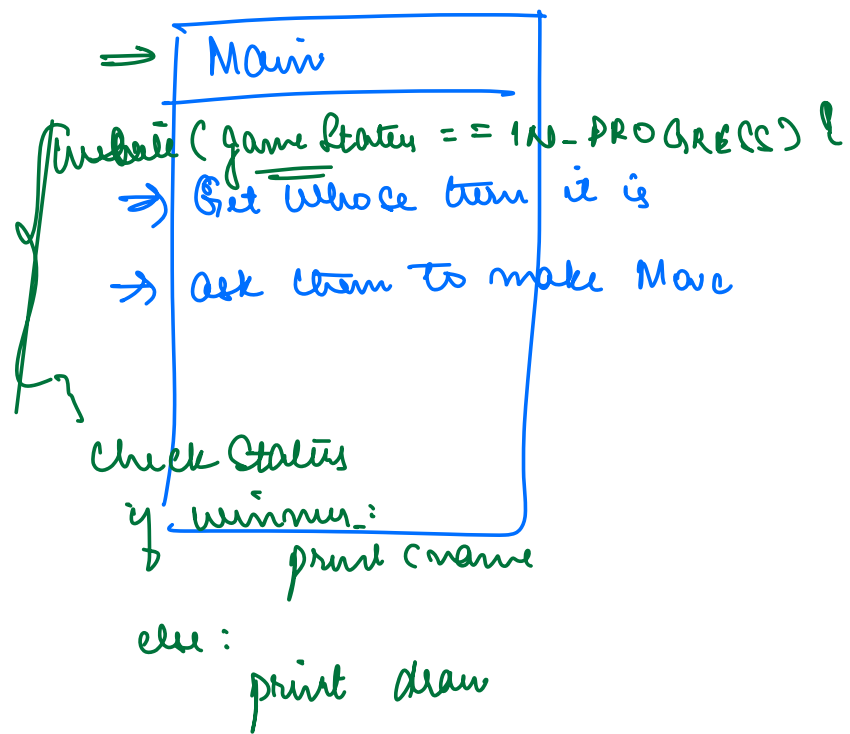 Main
while (gameStatus == IN_PROGRESS) {
Get whose turn it is
ask them to make Move
check Status
if winner :
print (name
else :
print draw